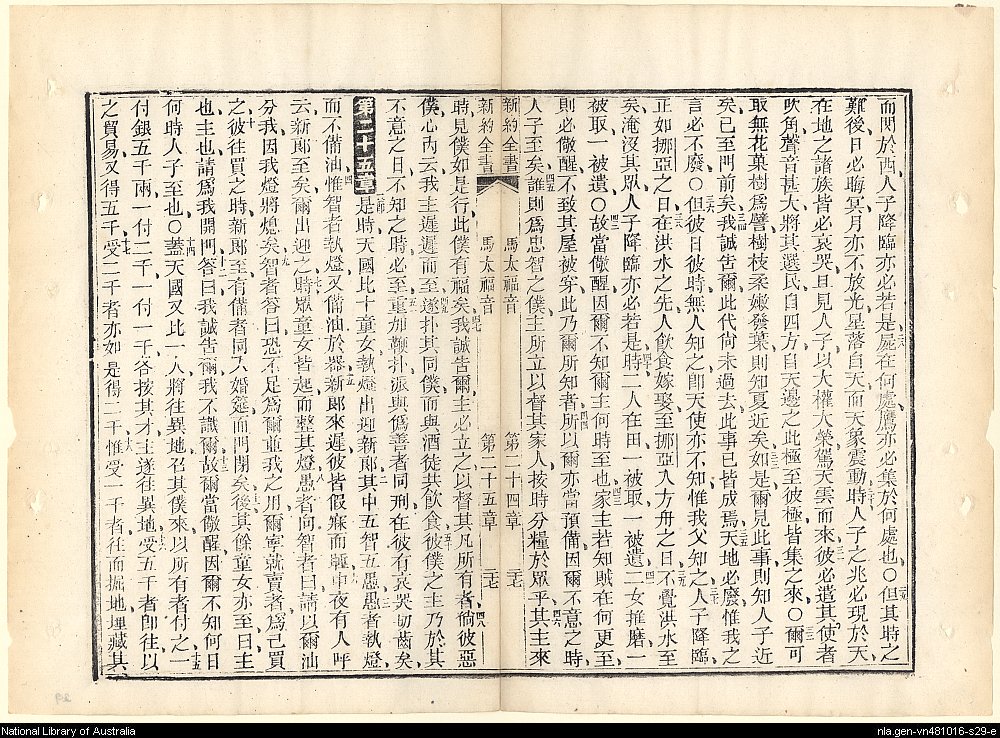 而閃於西人子降臨亦必若是屍在何處鷹亦必集於何處也〇但其時之
難後日必晦冥月亦不放光星落自天而天象震動時人子之兆必現於天
在地之諸族皆必哀哭且見人子以大權大榮駕天雲而來彼必遣其使者
吹角聲音甚大將其選民自四方自天邊之此極至彼極皆集之來〇爾可
取無花菓樹爲譬樹枝柔嫩發葉則知夏近矣如是爾見此事則知人子近
矣已至門前矣我誠告爾此代尚未過去此事已皆成焉天地必廢惟我之
言必不廢〇但彼日彼時無人知之即天使亦不知惟我父知之人子降臨
正如挪亞之日在洪水之先人飲食嫁娶至挪亞入方舟之日不覺洪水至
矣淹沒其眾人子降臨亦必若是時二人在田一被取一被遺二女推磨一
被取一被遺〇故當儆醒因爾不知爾主何時至也家主若知賊在何更至
則必儆醒不致其屋被穿此乃爾所知者所以爾亦當預備因爾不意之時
人子至矣誰則爲忠智之僕主所立以督其家人按時分糧於眾乎其主來
新約全書 馬太福音 第二十四章 三七
新約全書 馬太福音 第二十五章 三七
時見僕如是行此僕有福矣我誠告爾主必立之以督其凡所有者倘彼惡
僕心內云我主遲遲而至遂扑其同僕而與酒徒共飲食彼僕之主乃於其
不意之日不知之時必至重加鞭扑派與僞善者同刑在彼有哀哭切齒矣
第二十五章 是時天國比十童女執燈出迎新郎其中五智五愚愚者執燈
而不備油惟智者執燈又備油於器新郎來遲彼皆假寐而睡中夜有人呼
云新郎至矣爾出迎之時眾童女皆起而整其燈愚者向智者曰請以爾油
分我因我燈將熄矣智者答曰恐不足爲爾並我之用爾寧就賣者爲己買
之彼往買之時新郎至有備者同入婚筵而門閉矣後其餘童女亦至曰主
也主也請爲我開門答曰我誠告爾我不識爾故爾當儆醒因爾不知何日
何時人子至也〇蓋天國又比一人將往異地召其僕來以所有者付之一
付銀五千兩一付二千一付一千各按其才主遂往異地受五千者即往以
之買易又得五千受二千者亦如是得二千惟受一千者往而掘地埋藏其
National Library of Australia
nla.gen-vn481016-s29-e